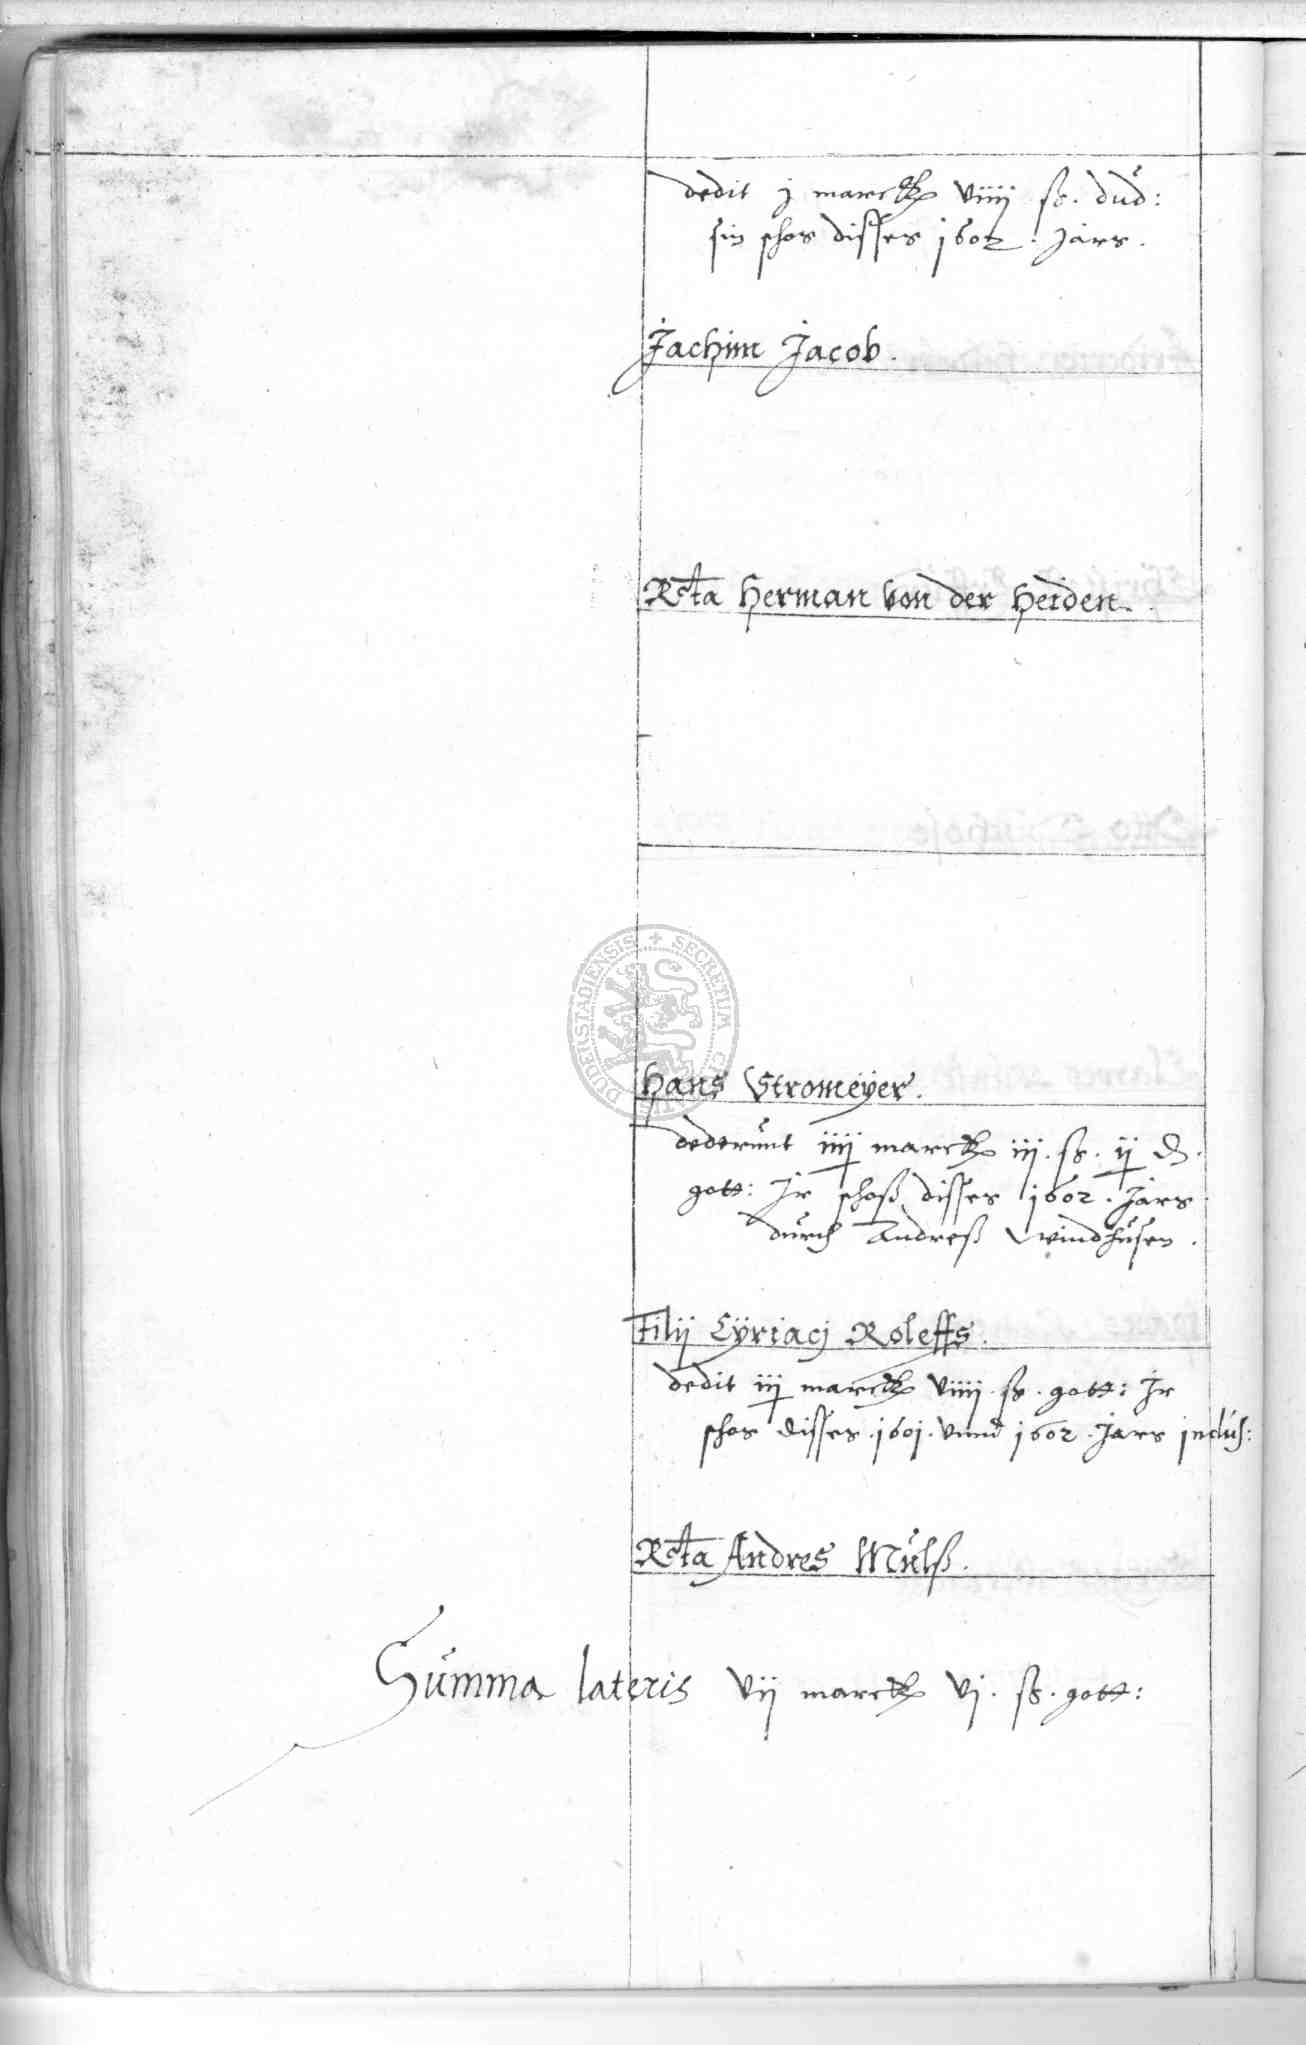 dedit j marck viiij ss. dud:
sin schos disses 1602. Jars.
Jachim Jacob.
Rcta Herman von der Heiden.
DUDERSTADIENSIS + SECRETUM
Hans Stromeyer.
dederunt iiij marck iij. ss. ij d.
gott: Jr schoß disses 1602. Jars
durch Andreß Windhusen.
Filij Cyriacj Roleffs.
dedit iij marck viiij. ss. gott: Jr
schos disses. 1601. vnnd 1602. Jars inclus:
Rcta Andres Mulß.
Summa lateris vij marck vj. ss. gott: